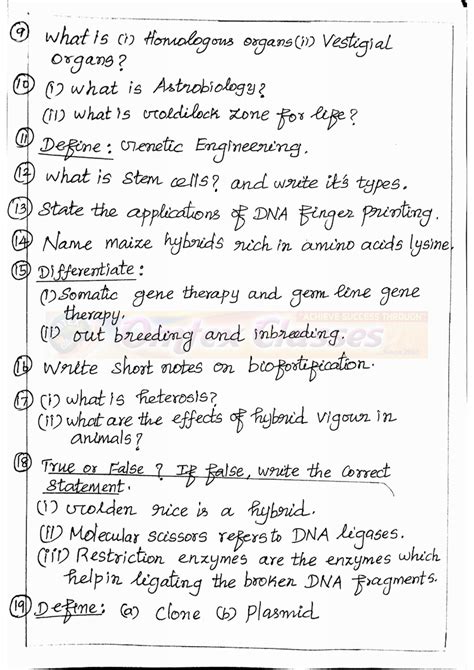 ⑨ What is (i) Homologous organs (ii) Vestigial
Organs?
⑩ (i) What is Astrobiology?
(ii) What is Goldilock zone for life?
⑪ Define: Genetic Engineering.
⑫ What is stem cells? and write it's types.
⑬ State the applications of DNA finger printing.
⑭ Name maize hybrids rich in amino acids lysine.
⑮ Differentiate:
(i) Somatic gene therapy and germ line gene
therapy.
(ii) out breeding and inbreeding.
"ACHIEVE SUCCESS THROUGH"
Classes
⑯ Write short notes on biofortification.
⑰ (i) What is heterosis?
(ii) what are the effects of hybrid vigour in
animals?
⑱ True or False? If false, write the correct
statement.
(i) Golden rice is a hybrid.
(ii) Molecular scissors refers to DNA ligases.
(iii) Restriction enzymes are the enzymes which
help in ligating the broken DNA fragments.
⑲ Define: (a) Clone (b) Plasmid